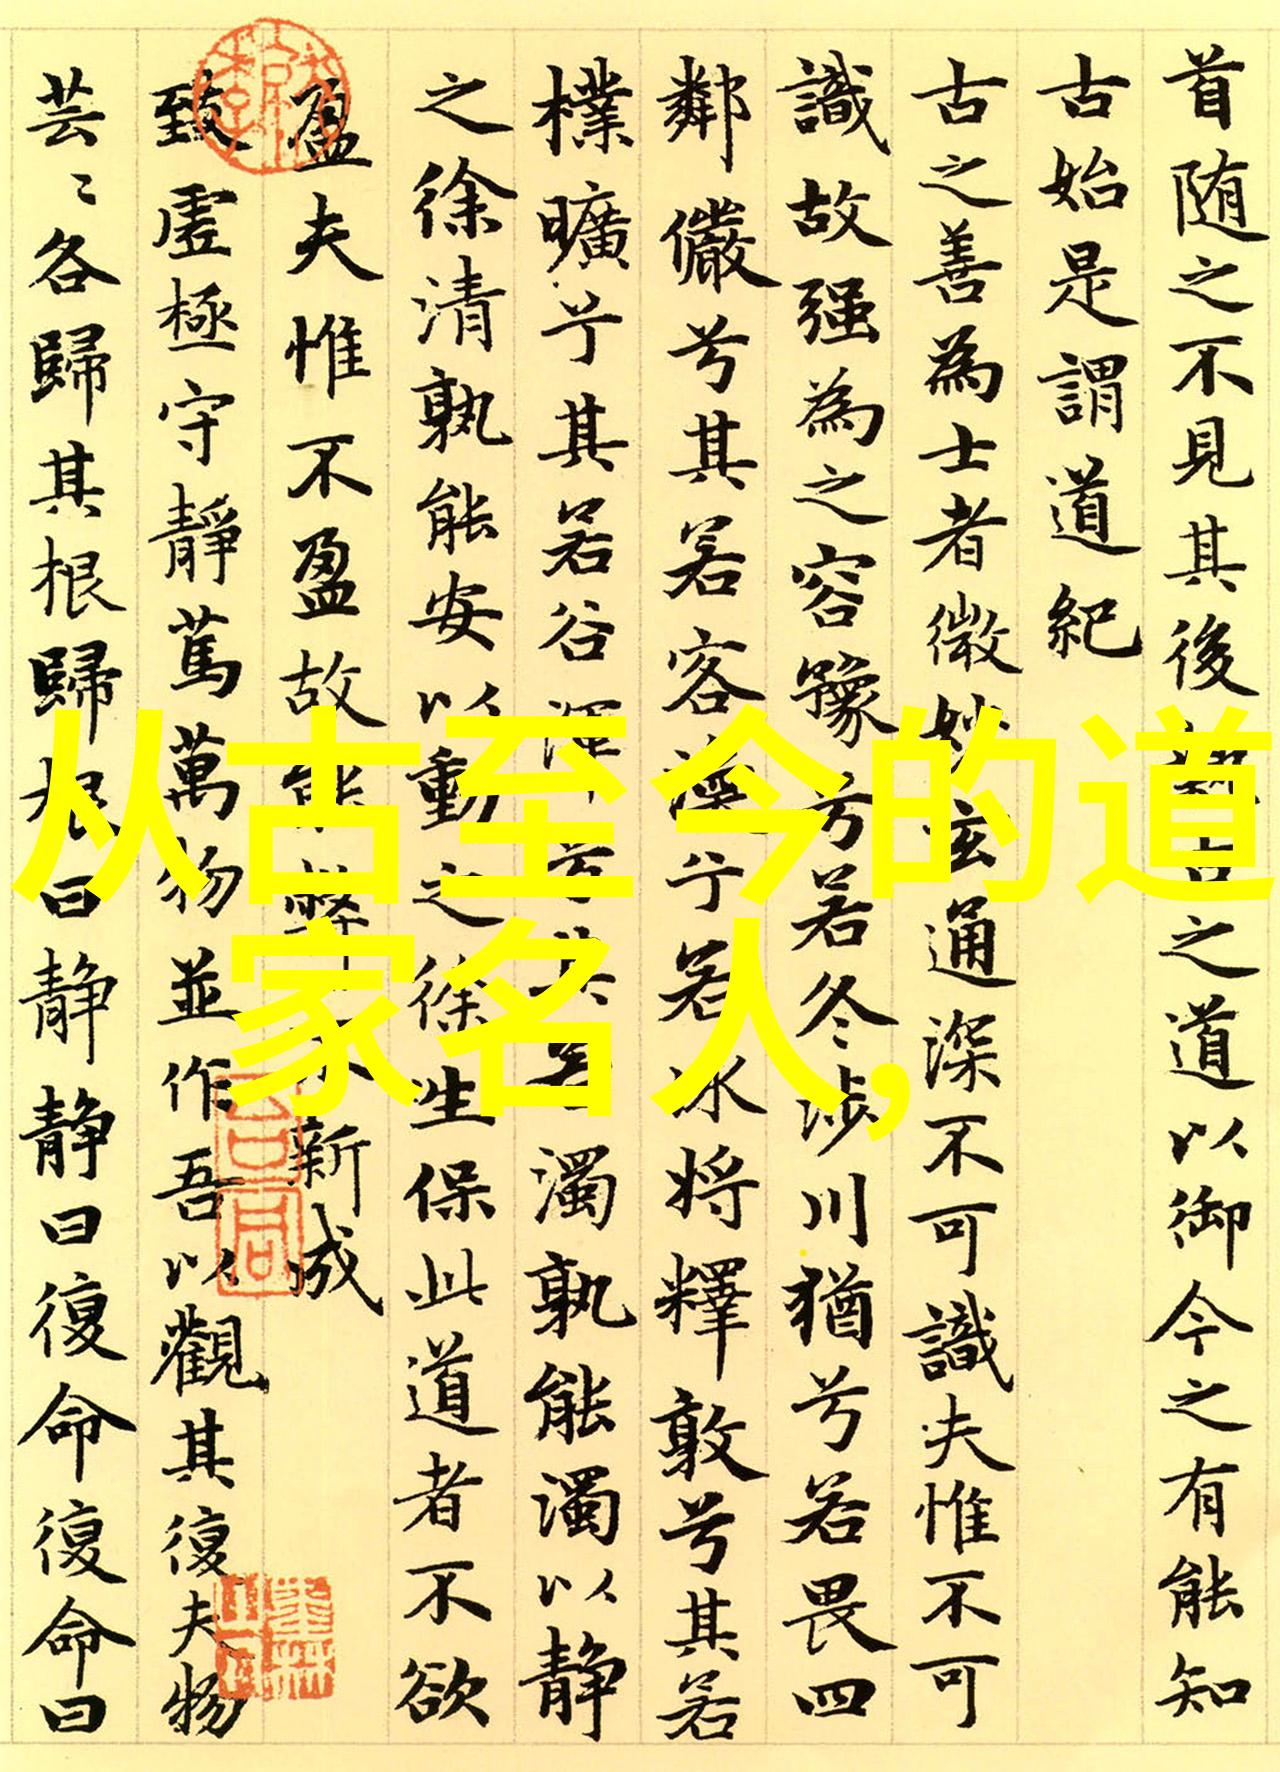 首随之不見其後之道以御今之有能知
古始是謂道紀
古之善為士者微妙玄通深不可識夫惟不可
識故强為之容豫兮若冬涉川猶兮若畏四
鄰儼兮其若客兮若冰将釋敦兮其若
樸曠兮其若谷渾兮其濁孰能濁以静
之徐清孰能安以動之徐生保此道者不欲
盈夫惟不盈故能不新成
致虛極守靜篤萬物並作吾以觀其復夫物
芸〻各歸其根歸根曰静静曰復命復命曰
从古至今的道
家名人,